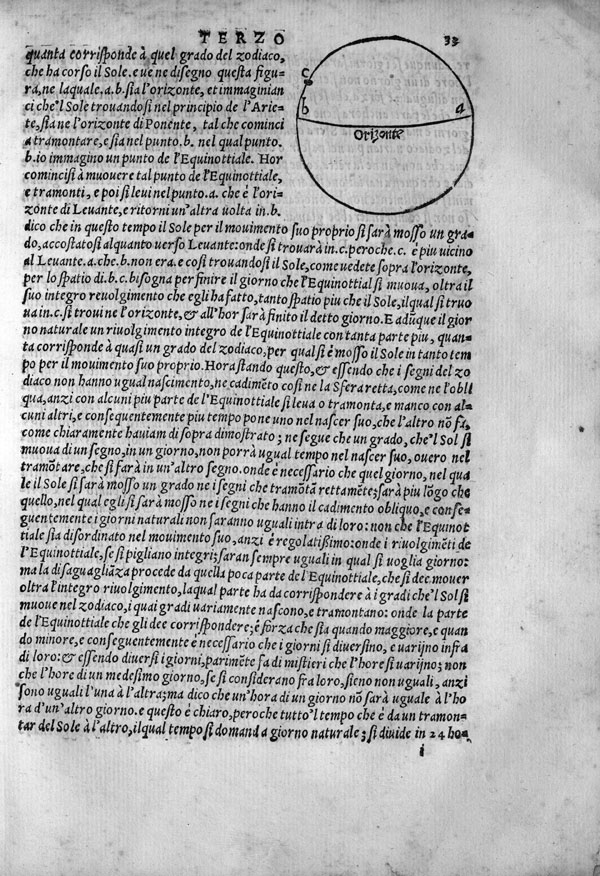 TERZO 33
quanta corrisponde à quel grado del zodiaco,
che ha corso il Sole. e ue ne disegno questa figu-
ra, ne laquale .a.b. sia l'orizonte, et immaginian
ci che'l Sole trouandosi nel principio de l'Arie-
te, sia ne l'orizonte di Ponẽnte, tal che cominci
a tramontare, e sia nel punto .b. nel qual punto.
b. io immagino un punto de l'Equinottiale. Hor
comincisi à muouere tal punto de l'Equinottiale,
e tramonti, e poi si leui nel punto .a. che é l'ori-
zonte di Leuante, e ritorni un'altra uolta in .b.
c
b
a
Orizonte
dico che in questo tempo il Sole per il mouimento suo proprio si sarà mosso un gra-
do, accostatosi alquanto uerso Leuante: onde si trouarà in .c. peroche .c. é piu uicino
al Leuante .a. che .b. non era. e così trouandosi il Sole, come uedete sopra l'orizonte,
per lo spatio di .b.c. bisogna per finire il giorno che l'Equinottial si muoua, oltra il
suo integro reuolgimento che egli ha fatto, tanto spatio piu che il Sole, ilqual si truo
ua in .c. si troui ne l'orizonte, & all'hor sarà finito il detto giorno. E adũque il gior
no naturale un riuolgimento integro de l'Equinottiale con tanta parte piu, quan-
ta corrisponde à quasi un grado del zodiaco, per qual si é mosso il Sole in tanto tem
po per il mouimento suo proprio. Hora stando questo, & essendo che i segni del zo
diaco non hanno ugual nascimento, ne cadimẽto così ne la Sfera retta, come ne l'obli
qua, anzi con alcuni piu parte de l'Equinottiale si leua o tramonta, e manco con al-
cuni altri, e consequentemente piu tempo pone uno nel nascer suo, che l'altro nõ fa,
come chiaramente hauiam di sopra dimostrato; ne segue che un grado, che'l Sol si
muoua di un segno, in un giorno, non porrà ugual tempo nel nascer suo, ouero nel
tramõtare, che si farà in un'altro segno. onde é necessario che quel giorno, nel qua
le il Sole si sarà mosso un grado ne i segni che tramõtã rettamẽte; sarà piu lõgo che
quello, nel qual egli si sarà mosso ne i segni che hanno il cadimento obliquo, e conse-
guentemente i giorni naturali non saranno uguali intra di loro: non che l'Equinot
tiale sia disordinato nel mouimento suo, anzi é regolatißimo: onde i riuolgimẽti de
l'Equinottiale, se si pigliano integri; saran sempre uguali in qual si uoglia giorno:
ma la disaguagliãza procede da quella poca parte del l'Equinottiale, che si dee mouer
oltra l'integro riuolgimento, laqual parte ha da corrispondere à i gradi che'l Sol si
muoue nel zodiaco, i quai gradi uariamente nascono, e tramontano: onde la parte
de l'Equinottiale che gli dee corrispondere; é forza che sia quando maggiore, e quan
do minore, e consequentemente é necessario che i giorni si diuersino, e uarijno infra
di loro: & essendo diuersi i giorni, parimẽte fa di mistieri che l'hore si uarijno; non
che l'hore di un medesimo giorno, se si considerano fra loro, sieno non uguali, anzi
sono uguali l'una à l'altra; ma dico che un'hora di un giorno nõ sarà uguale à l'ho
ra d'un'altro giorno. e questo é chiaro, peroche tutto'l tempo che é da un tramon-
tar del Sole à l'altro, ilqual tempo si domanda giorno naturale; si diuide in 24 ho-
i